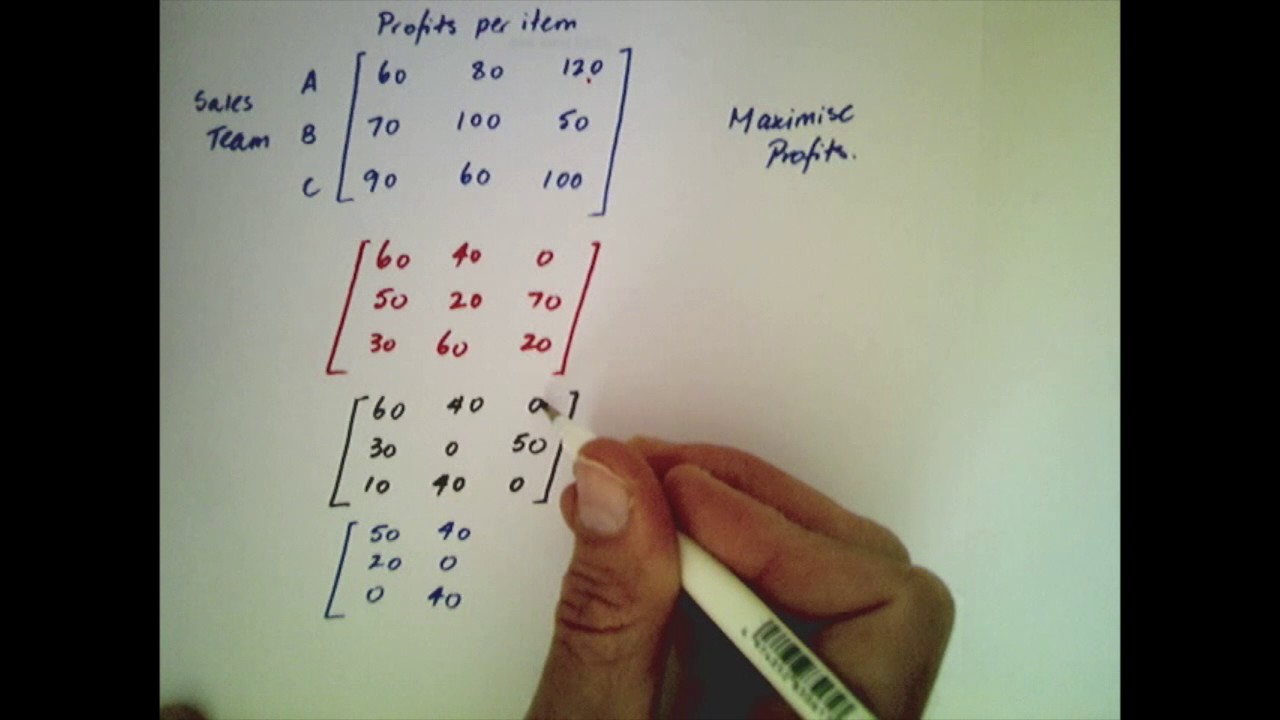 Profits per item
Sales Team
A 60 80 120
B 70 100 50
C 90 60 100
Maximise
Profits.
60 40 0
50 20 70
30 60 20
60 40 0
30 0 50
10 40 0
50 40
20 0
0 40